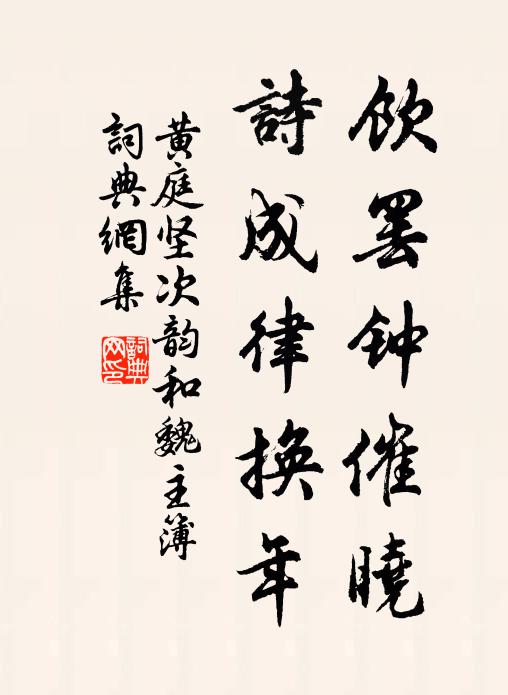 饮罢钟催曉
詩成律换年
黄庭坚次韵和魏主簿
詞典網集
詞典网印